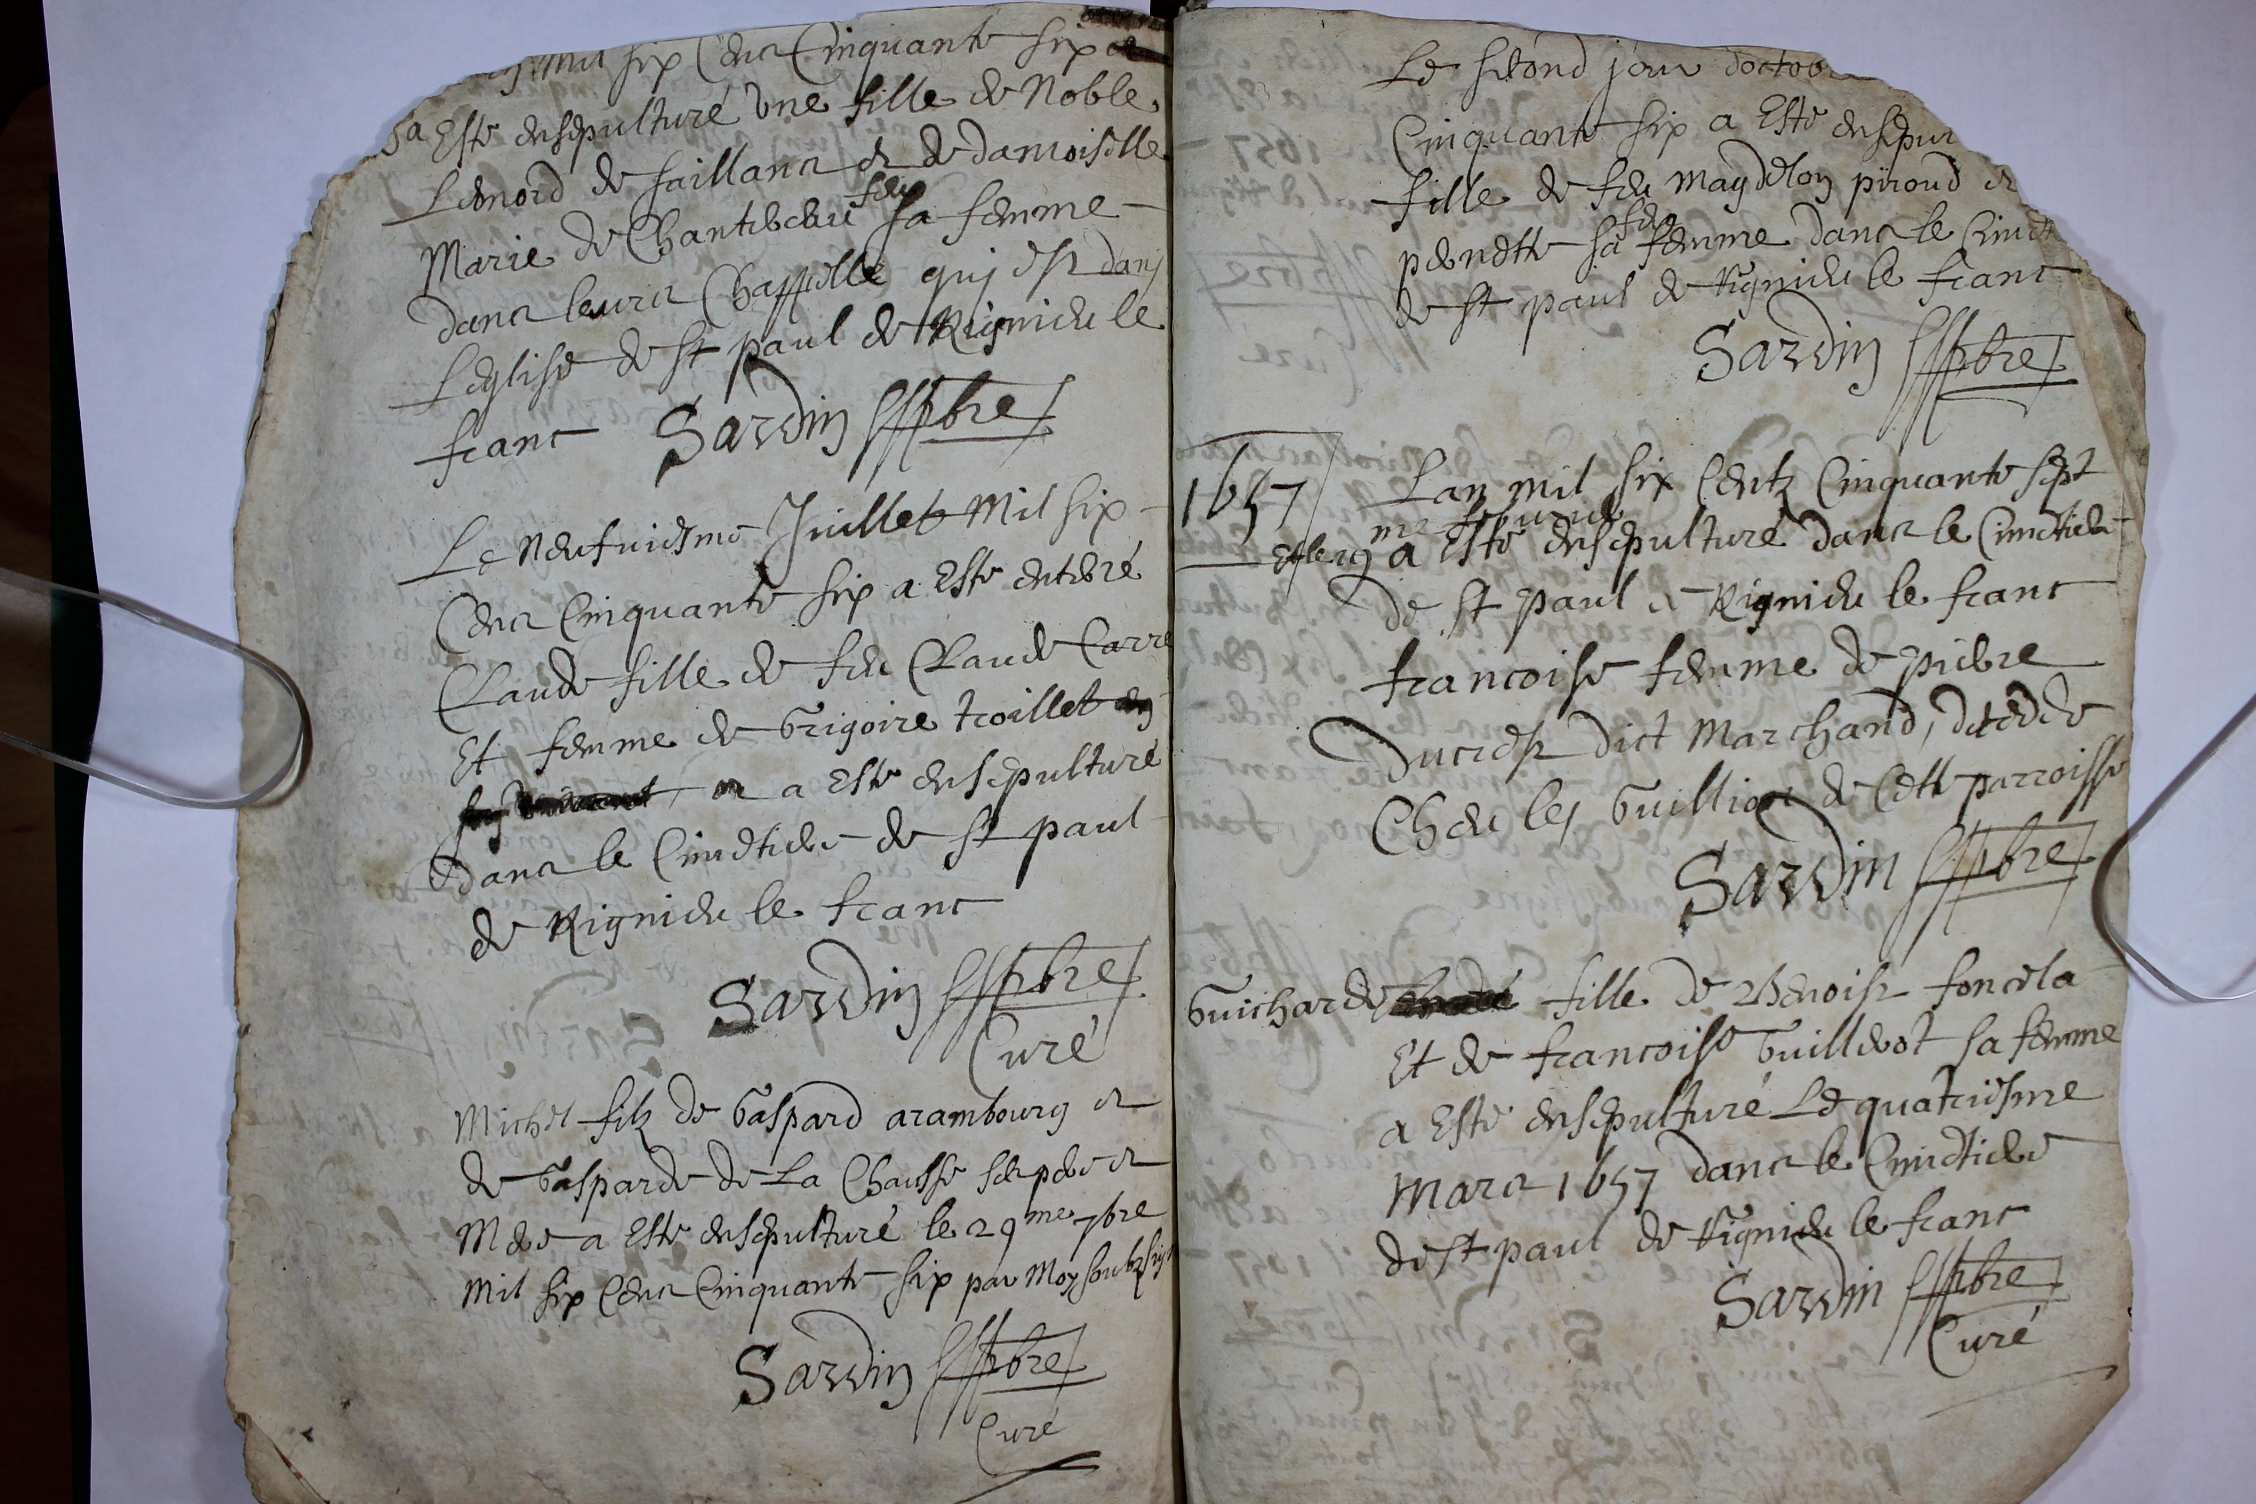 mil six Cens Cinquante six et
a Este ensepulturé une fille de Noble
Leonord de saillans et de damoiselle
Marie de Chantebeau feu sa femme
dans leurs Chappelle quj est dans
Leglise de st paul de Rignieu le
franc Sardin pbre
Le neufuiesme Juillet Mil six
Cens Cinquante six a Este enterré
Claude fille de feu Claude Carre
Et femme de Grigoire troillet
et a Este ensepulturé
dans le Cimetiere de st paul
de Rignieu le franc
Sardin pbre
Curé
Michel filz de Gaspard arambourg et
de Gasparde de La Chausse ses pere et
Mere a Este ensepulturé le 29me 7bre
Mil six Cens Cinquante six par Moy soubzsigné
Sardin pbre
Curé
Le second jour doctob
Cinquante six a Este ensepul
fille de feu magdelon piroud et
pernette sa feu femme dans le Cimet
de st paul de Rignieu le franc
Sardin pbre
1657 Lan mil six Centz Cinquante sept
Et le 19 me feburier a Este ensepulturé dans le Cimetiere
de st paul de Rignieu le franc
francoise femme de pierre
Ducrest dict Marchand, decede
Cheu les Guillion de Cette parroisse
Sardin pbre
Guicharde fille de Benoist foncela
Et de francoise Guillerot sa femme
a Este ensepulturé Le quatriesme
Mars 1657 dans le Cimetiere
de st paul de Rignieu le franc
Sardin pbre
Curé